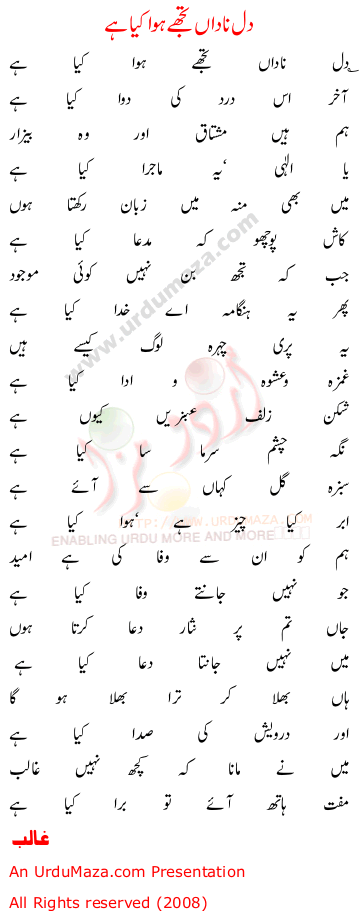 دل ناداں تجھے ہوا کیا ہے
دل ناداں تجھے ہوا کیا ہے
آخر اس درد کی دوا کیا ہے
ہم ہیں مشتاق اور وہ بیزار
یا الٰہی ' یہ ماجرا کیا ہے
میں بھی منہ میں زبان رکھتا ہوں
کاش پوچھو کہ مدعا کیا ہے
جب کہ تجھ بن نہیں کوئی موجود
پھر یہ ہنگامہ اے خدا کیا ہے
یہ پری چہرہ لوگ کیسے ہیں
غمزہ وعشوہ و ادا کیا ہے
شکن زلف عنبریں کیوں ہے
نگہ چشم سرما سا کیا ہے
سبزہ گل کہاں سے آئے ہے
ابر کیا چیز ہے ' ہوا کیا ہے
ہم کو ان سے وفا کی ہے امید
جو نہیں جانتے وفا کیا ہے
جاں تم پر نثار دعا کرتا ہوں
میں نہیں جانتا دعا کیا ہے
ہاں بھلا کر ترا بھلا ہو گا
اور درویش کی صدا کیا ہے
میں نے مانا کہ کچھ نہیں غالب
مفت ہاتھ آئے تو برا کیا ہے
غالب
An UrduMaza.com Presentation
All Rights reserved (2008)
www.urdumaza.com
اردو مزا
HTTP://WWW.URDUMAZA.COM
ENABLING URDU MORE AND MORE